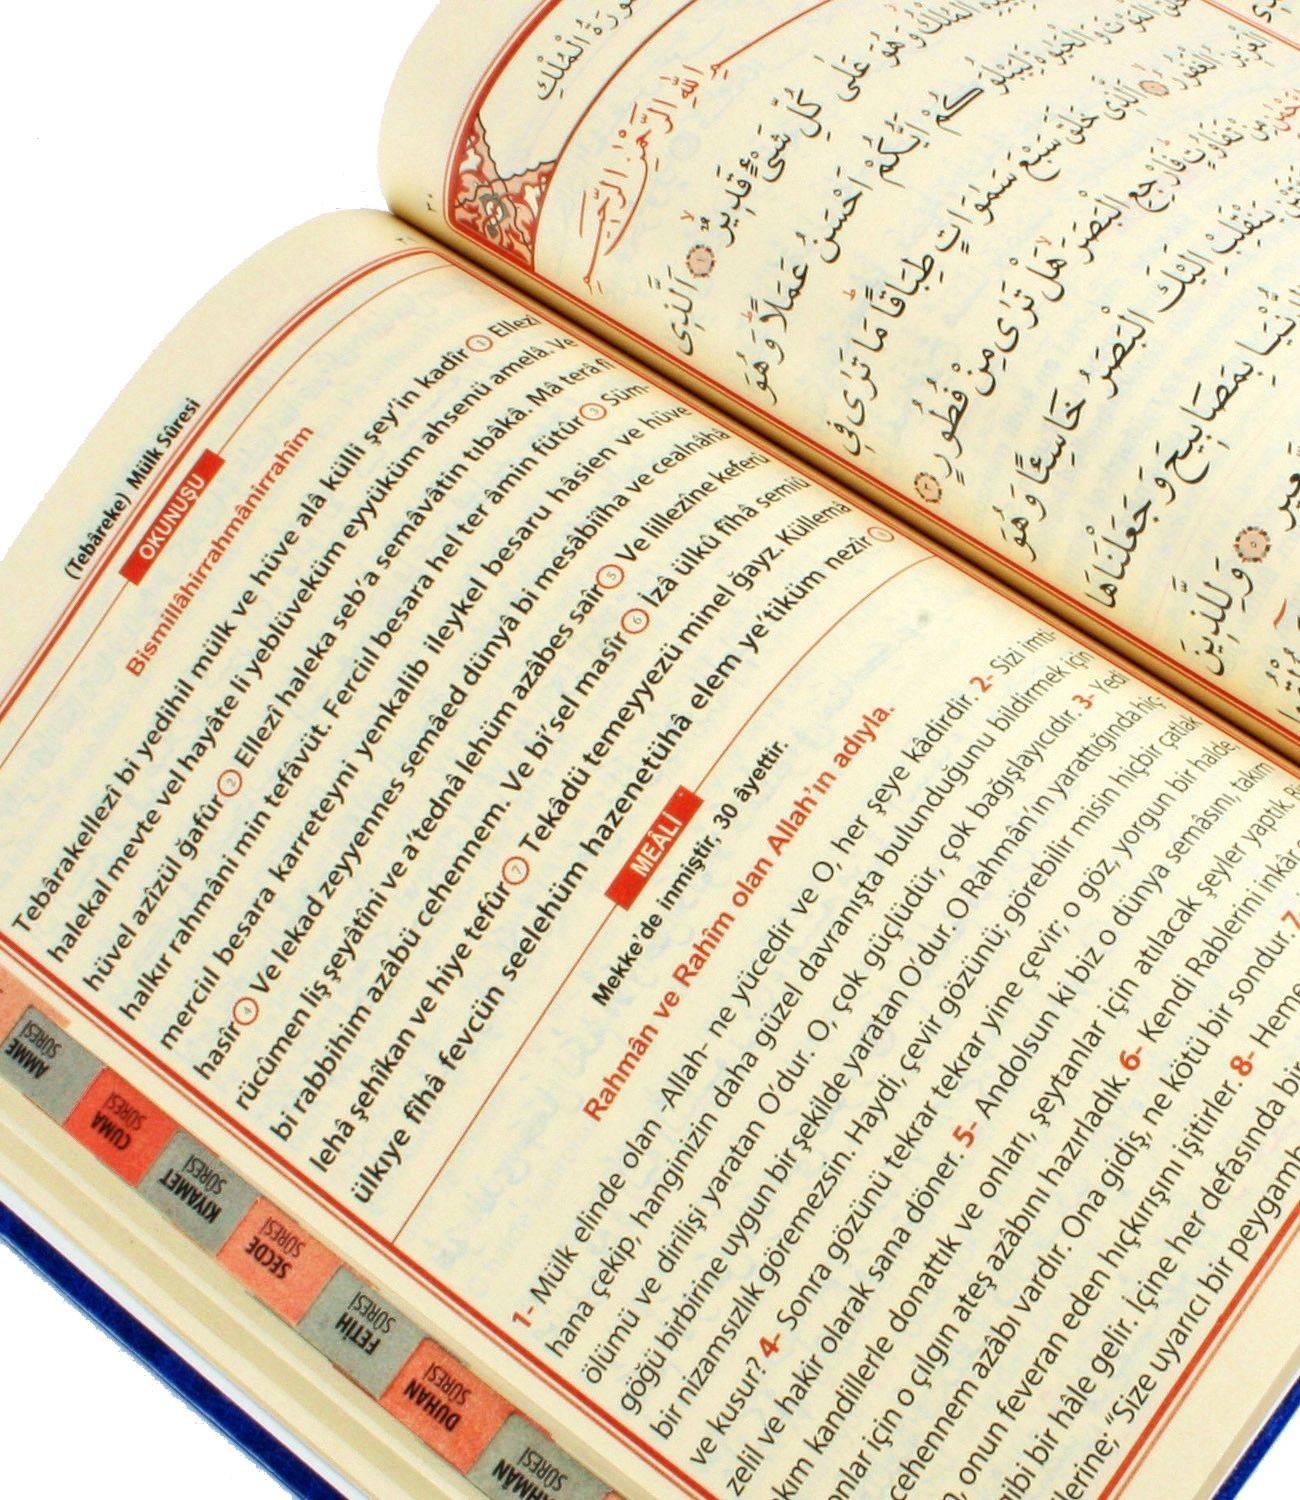 (Tebâreke) Mülk Sûresi
OKUNUŞU
Bismillâhirrahmânirrahîm
Tebârakellezî bi yedihil mülk ve hüve alâ külli şey'in kadîr 1 Ellezî
halekal mevte vel hayâte li yeblüveküm eyyüküm ahsenü amelâ. Ve
hüvel azîzül ğafûr 2 Ellezî haleka seb'a semâvâtin tıbâkâ. Mâ terâ fî
halkır rahmâni min tefâvüt. Ferciıl besara hel ter âmin fütûr 3 Süm-
merciıl besara karreteyni yenkalib ileykel besaru hâsien ve hüve
hasîr 4 Ve lekad zeyyennes semâed dünyâ bi mesâbîiha ve cealnâhâ
rücûmen liş şeyâtîni ve a'tednâ lehüm azâbes saîr 5 Ve lillezîne keferû
bi rabbihim azâbü cehennem. Ve bi'sel masîr 6 İzâ ülkû fîhâ semiû
lehâ şehîkan ve hiye tefûr 7 Tekâdü temeyyezü minel ğayz. Küllemâ
ülkıye fîhâ fevcün seelehüm hazenetühâ elem ye'tiküm nezîr 8
MEÂLİ
Mekke'de inmiştir, 30 âyettir.
Rahmân ve Rahîm olan Allah'ın adıyla.
1- Mülk elinde olan -Allah- ne yücedir ve O, her şeye kâdirdir. 2- Sizi imti-
hana çekip, hanginizin daha güzel davranışta bulunduğunu bildirmek için
ölümü ve dirilişi yaratan O'dur. O, çok güçlüdür, çok bağışlayıcıdır. 3- Yedi
göğü birbirine uygun bir şekilde yaratan O'dur. O Rahmân'ın yarattığında hiç-
bir nizamsızlık göremezsin. Haydi, çevir gözünü; görebilir misin hiçbir çatlak
ve kusur? 4- Sonra gözünü tekrar tekrar yine çevir; o göz, yorgun bir halde,
zelil ve hakir olarak sana döner. 5- Andolsun ki biz o dünya semâsını, takım
kım kandillerle donattık ve onları, şeytanlar için atılacak şeyler yaptık.
onlar için o çılgın ateş azâbını hazırladık. 6- Kendi Rablerini inkâr
cehennem azâbı vardır. Ona gidiş, ne kötü bir sondur. 7
onun feveran eden hıçkırışını işitirler. 8- Heme
gibi bir hâle gelir. İçine her defasında bir
lerine; "Size uyarıcı bir peygamb
AMME SÛRESİ
CUMA SÛRESİ
KIYAMET SÛRESİ
SECDE SÛRESİ
FETİH SÛRESİ
DUHAN SÛRESİ
HMÂN SÛRESİ
سُورَةُ الْمُلْكِ
اللّٰهِ الرَّحْمٰنِ الرَّحِيمِ
الْمُلْكُ وَهُوَ عَلٰى كُلِّ شَيْءٍ قَدِيرٌ ١ اَلَّذِى
الْمَوْتَ وَالْحَيٰوةَ لِيَبْلُوَكُمْ اَيُّكُمْ اَحْسَنُ عَمَلًا وَهُوَ
الْعَزِيزُ الْغَفُورُ ٢ اَلَّذِى خَلَقَ سَبْعَ سَمٰوَاتٍ طِبَاقًا مَا تَرٰى فِى
مِنْ تَفَاوُتٍ فَارْجِعِ الْبَصَرَ هَلْ تَرٰى مِنْ فُطُورٍ ٣
يَنْقَلِبْ اِلَيْكَ الْبَصَرُ خَاسِئًا وَهُوَ
الدُّنْيَا بِمَصَابِيحَ وَجَعَلْنَاهَا
السَّعِيرِ ٥ وَلِلَّذِينَ